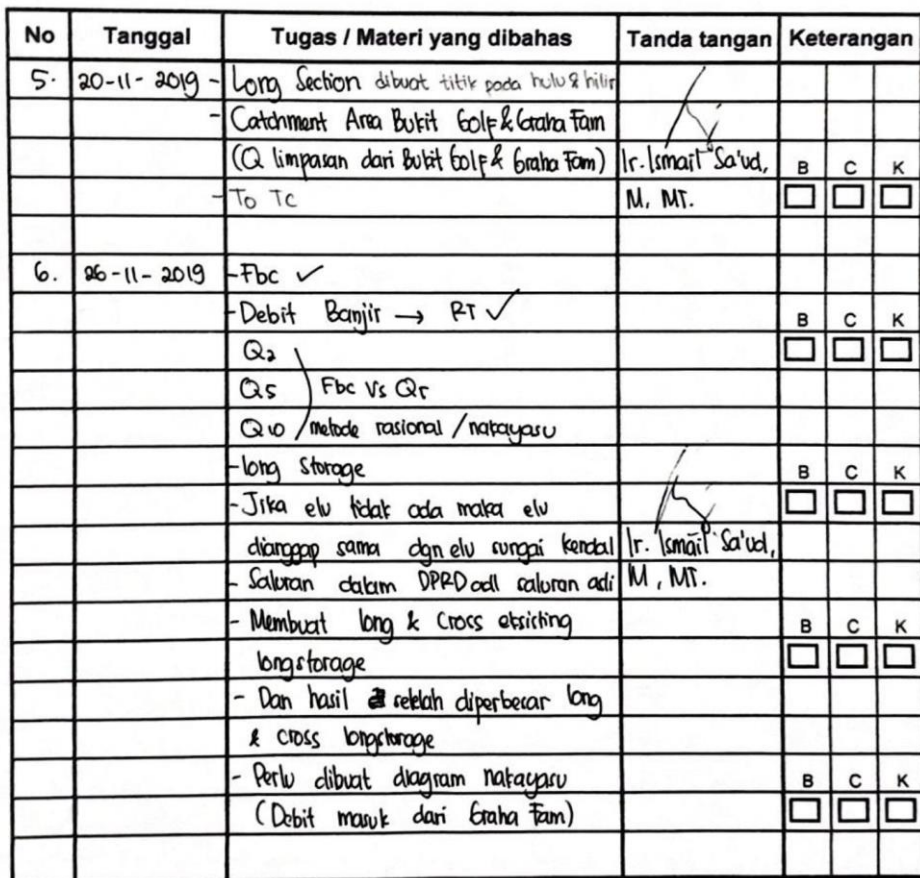 No Tanggal Tugas / Materi yang dibahas Tanda tangan Keterangan
5. 20-11-2019 - Long Section dibuat titik pada hulu & hilir
- Catchment Area Bukit Golf & Graha Fam
(Q limpasan dari Bukit Golf & Graha Fam) Ir. Ismail Sa'ud, B C K
- To Tc M, MT.
6. 26-11-2019 - Fbc ✓
- Debit Banjir → RT ✓ B C K
Q2
Q5 Fbc Vs Qr
Q10 metode rasional / nakayasu
- long storage B C K
- Jika elv tidak ada maka elv
dianggap sama dgn elv sungai kendal Ir. Ismail Sa'ud,
- Saluran dalam DPRD adl saluran adi M, MT.
- Membuat long & Cross eksisting B C K
longstorage
- Dan hasil setelah diperbesar long
& cross longstorage
- Perlu dibuat diagram nakayasu B C K
(Debit masuk dari Graha Fam)